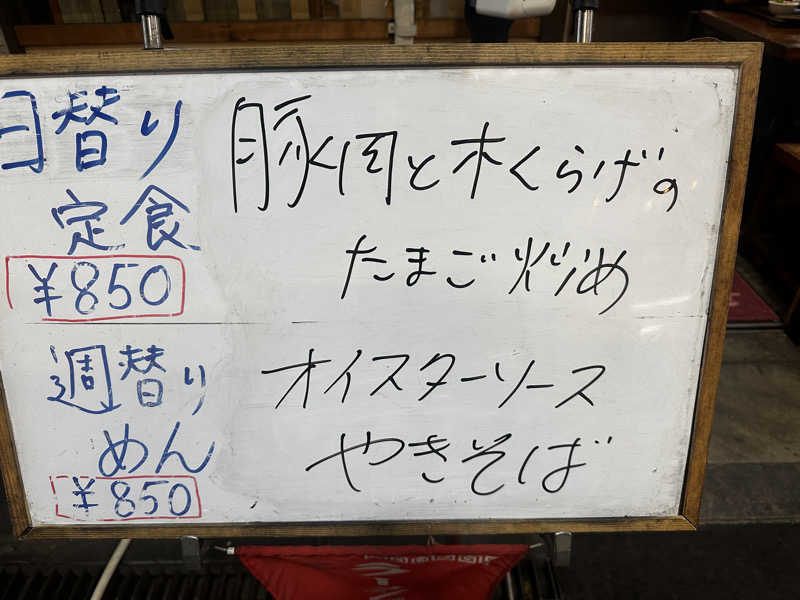 日替り
定食
¥850
豚肉と木くらげの
たまご炒め
週替り
めん
¥850
オイスターソース
やきそば